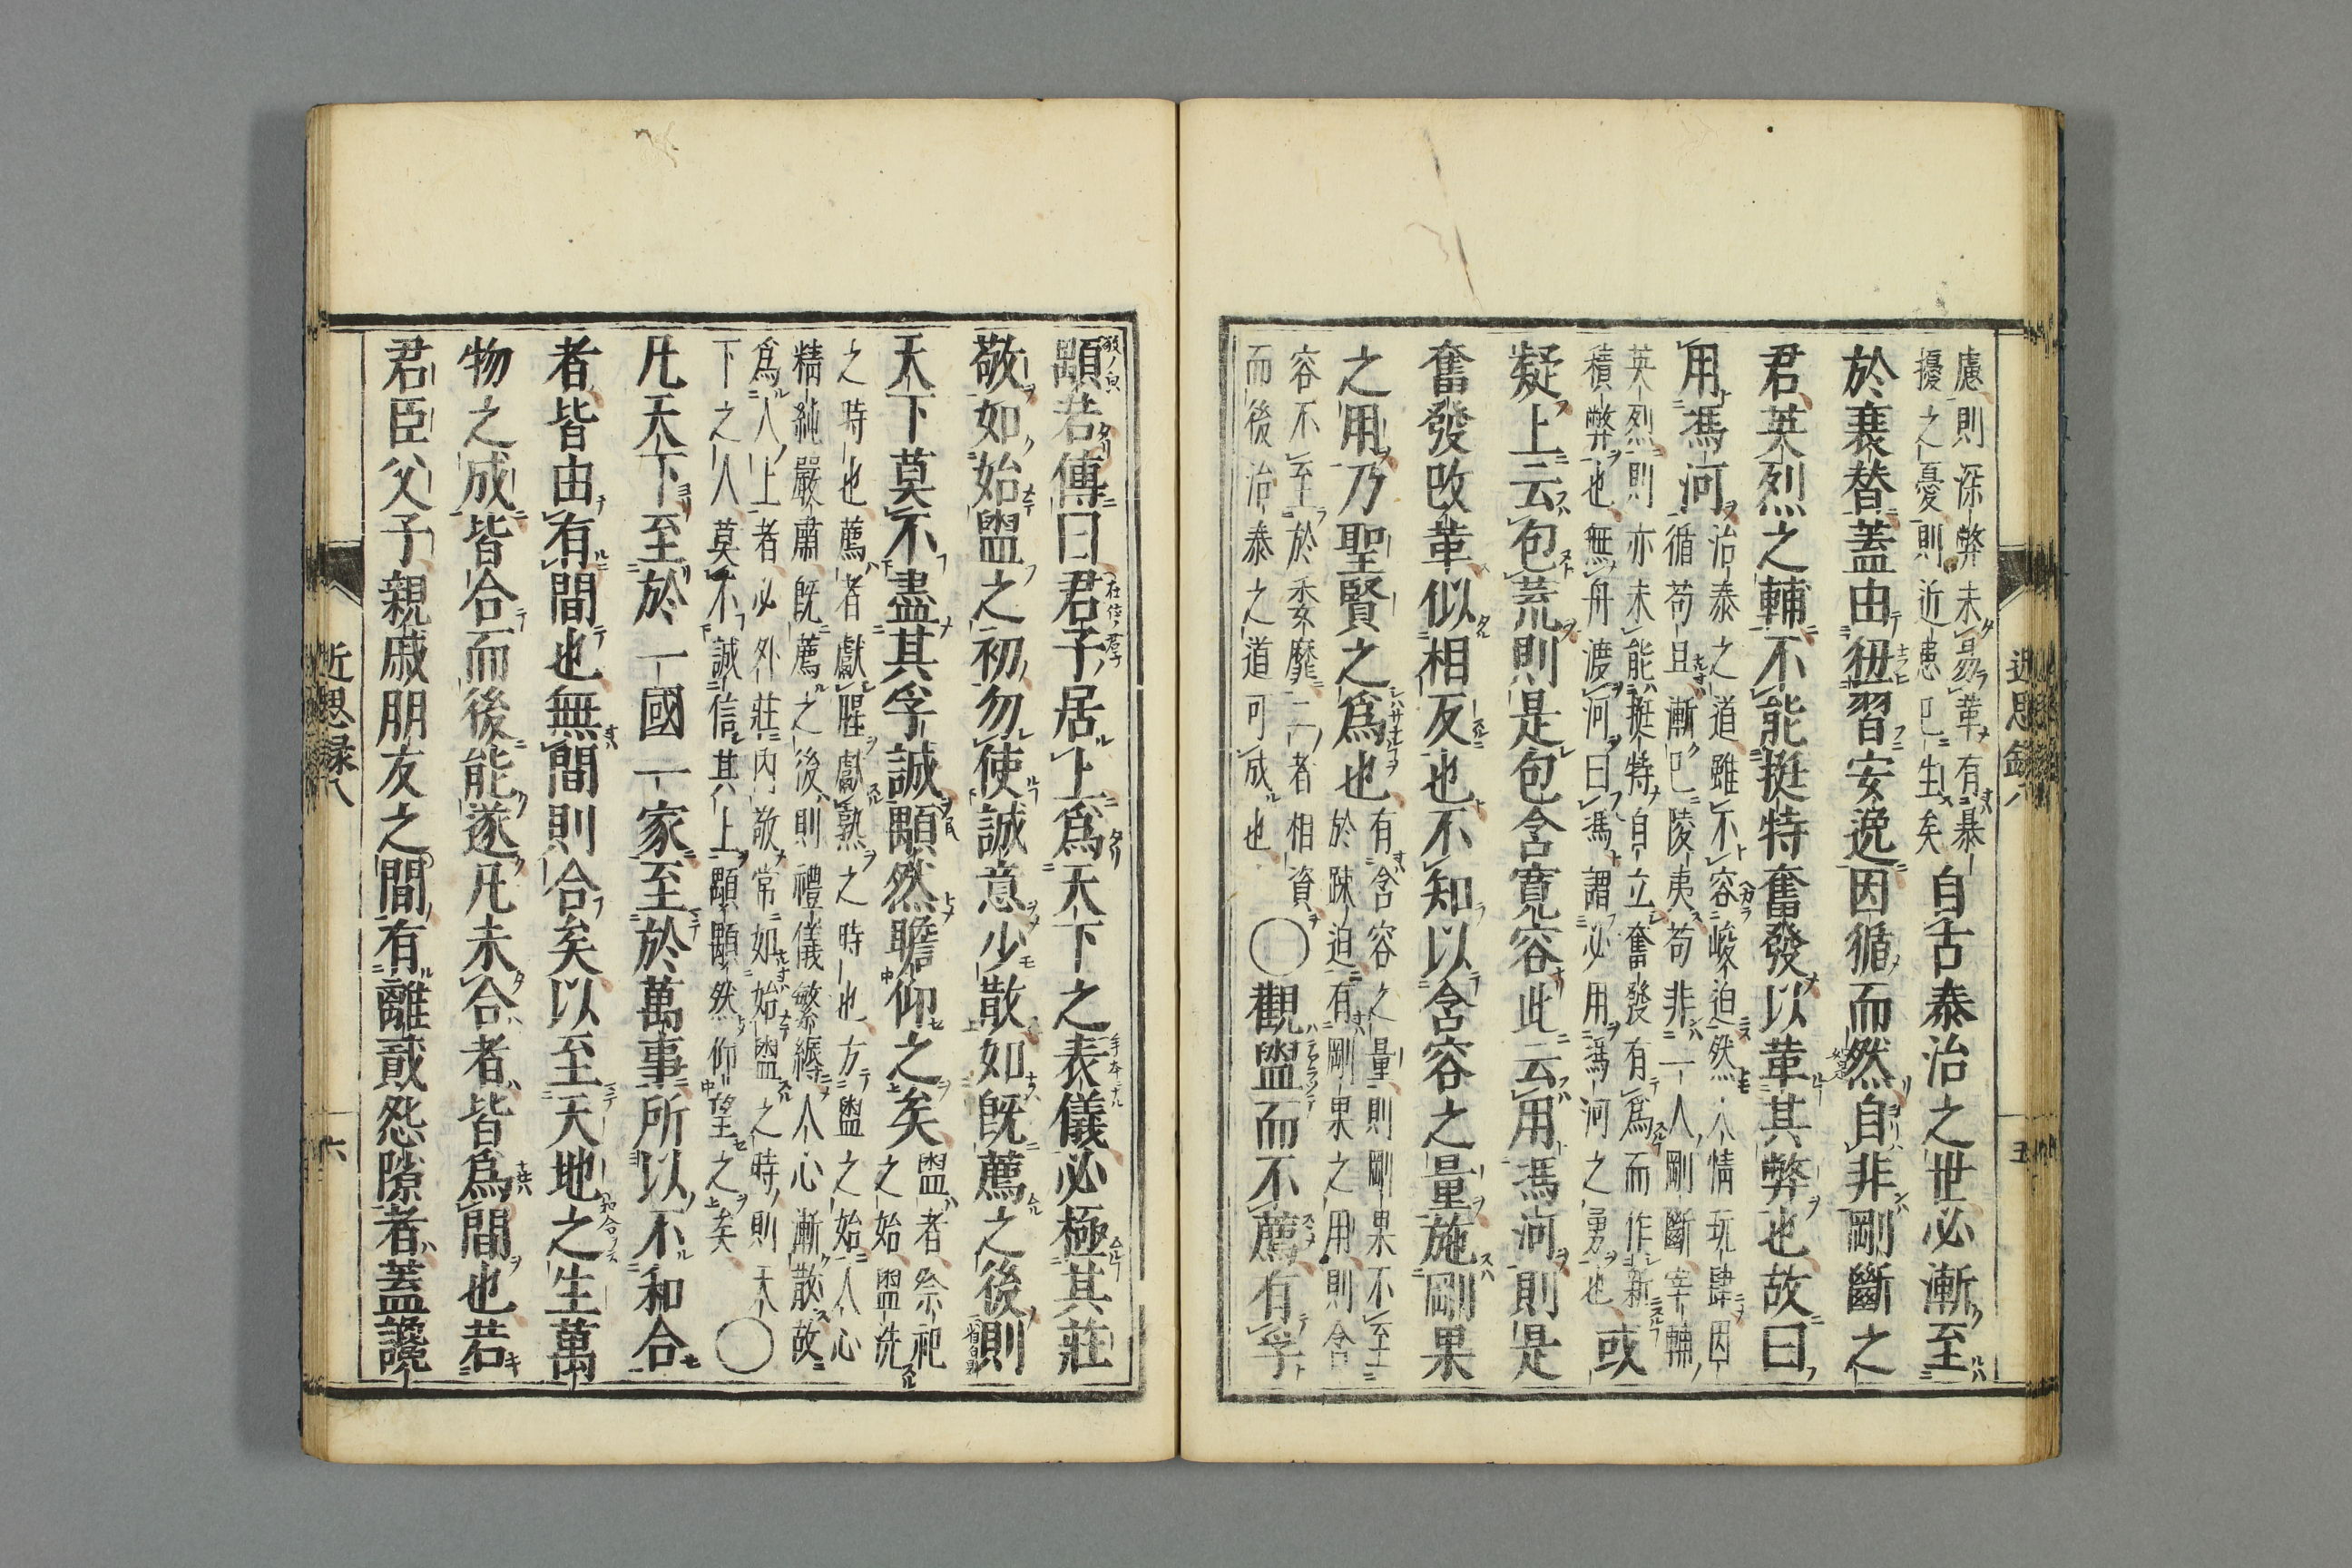 慮則深弊未易革有暴
擾之憂則近患已生矣
自古泰治之世必漸至
於衰替蓋由狃習安逸因循而然自非剛斷之
君英烈之輔不能挺特奮發以革其弊也故曰
用馮河
治泰之道雖不容峻迫然人情玩肆因
循苟且漸已陵夷苟非一人剛斷宰輔
英烈則亦未能挺特自立奮發有爲而作新
積弊也無舟渡河曰馮謂必用馮河之勇也
或
疑上云包荒則是包含寛容此云用馮河則是
奮發改革似相反也不知以含容之量施剛果
之用乃聖賢之爲也
有含容之量則剛果不至
於疎迫有剛果之用則含
容不至於委靡二者相資
而後治泰之道可成也
〇觀盥而不薦有孚
近思錄八
五
顒若傳曰君子居上爲天下之表儀必極其莊
敬如始盥之初勿使誠意少散如既薦之後則
天下莫不盡其孚誠顒然瞻仰之矣
盥者祭祀
之始盥洗
之時也薦者獻腥獻熟之時也方盥之始人心
精純嚴肅既薦之後則禮儀繁縟人心漸散故
爲人上者必外莊內敬常如始盥之時則天
下之人莫不誠信其上顒顒然仰望之矣
〇
凡天下至於一國一家至於萬事所以不和合
者皆由有間也無間則合矣以至天地之生萬
物之成皆合而後能遂凡未合者皆爲間也若
君臣父子親戚朋友之間有離貳怨隙者蓋讒
近思録八
六